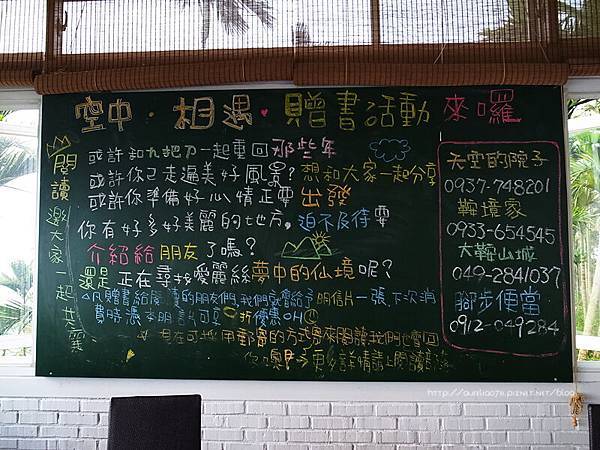 空中・相遇・贈書活動 來囉
閱讀 邀大家一起共襄
或許和九把刀一起重回那些年
或許你已走遍美好風景?想和大家一起分享
或許你準備好心情正要出發
你有好多好美麗的地方,迫不及待要
介紹給朋友了嗎?
還是正在尋找愛麗絲夢中的仙境呢?
凡贈書給 的朋友們,我們 給予明信片一張,下次消
費時憑本明信片可享 折優惠OH
現在可以用郵寄的方式 來閱讀我們也會回
更多詳情請上閱讀
天空的院子
0937-748201
鞍境家
0933-654545
大鞍山城
049-2841037
腳步便當
0912-049284